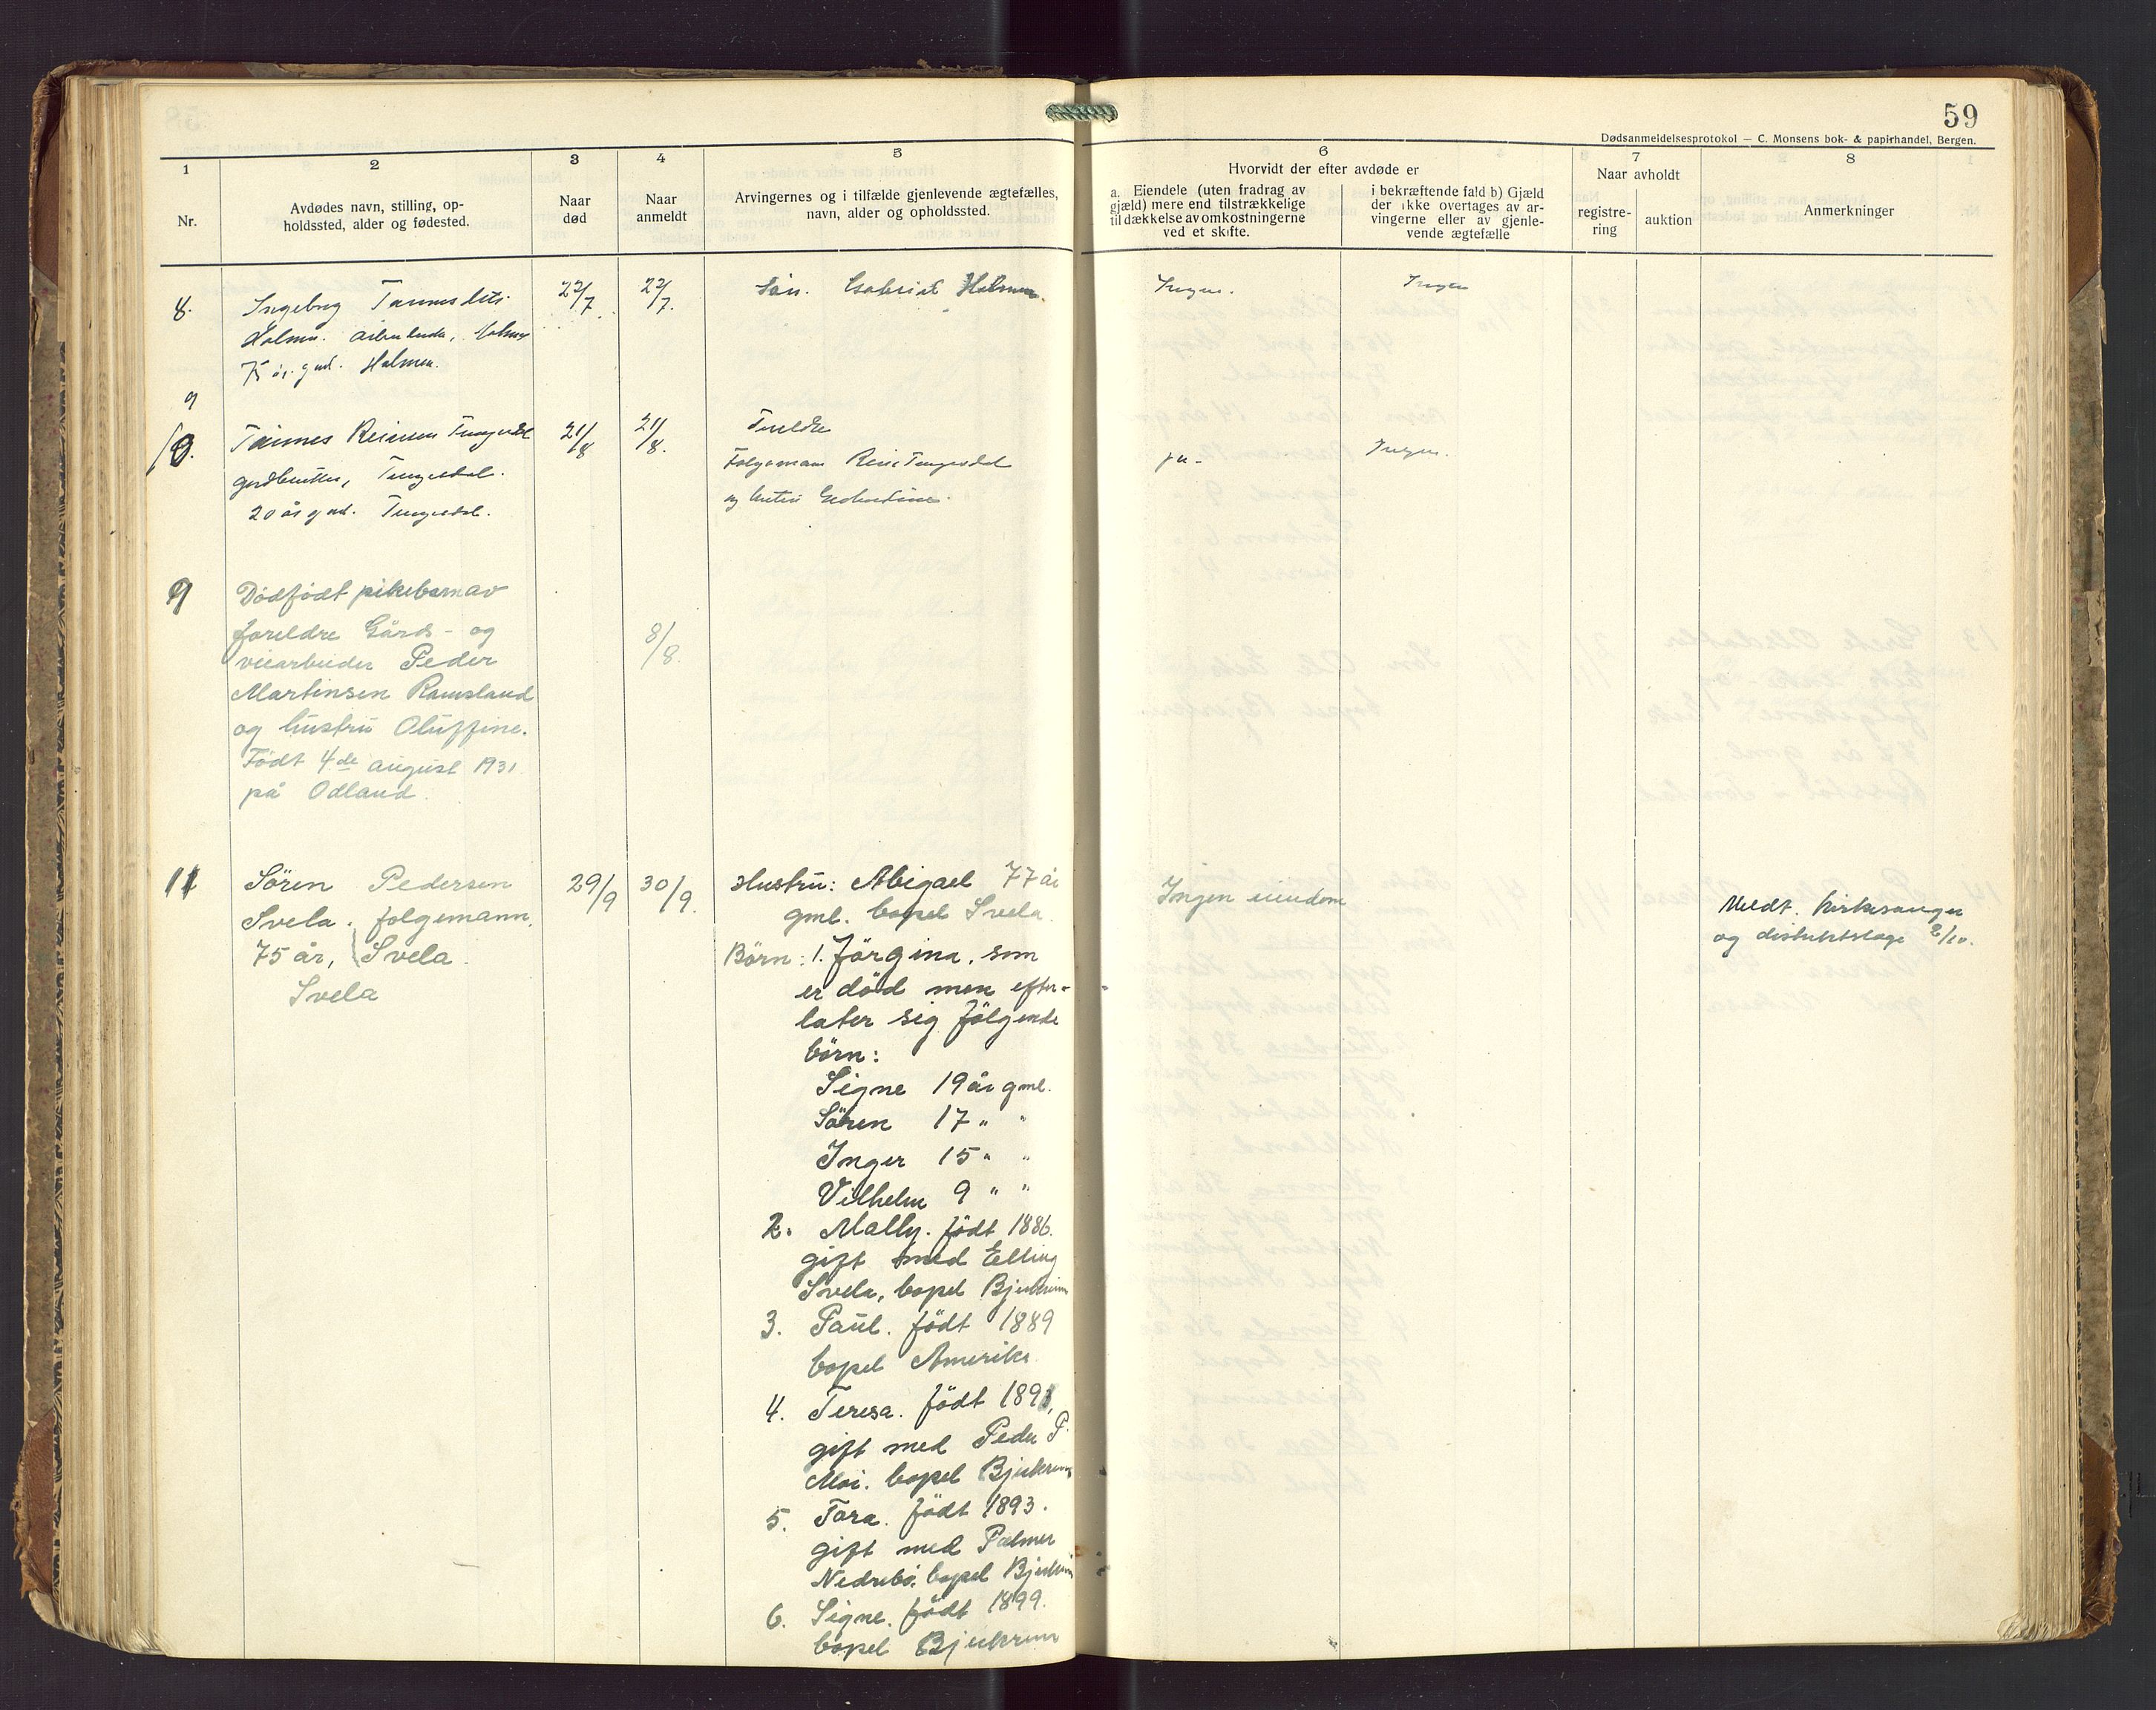 59
Dødsanmeldelsesprotokol — C. Monsens bok- & papirhandel, Bergen.
1
Nr.
2
Avdødes navn, stilling, op-
holdssted, alder og fødested.
3
Naar
død
4
Naar
anmeldt
5
Arvingernes og i tilfælde gjenlevende ægtefælles,
navn, alder og opholdssted.
6
Hvorvidt der efter avdøde er
a. Eiendele (uten fradrag av
gjæld) mere end tilstrækkelige
til dækkelse av omkostningerne
ved et skifte.
i bekræftende fald b) Gjæld
der ikke overtages av ar-
vingerne eller av gjenle-
vende ægtefælle
7
Naar avholdt
registre-
ring
auktion
8
Anmerkninger
8.
Ingeborg
Holmen
75 år gml. Holmen.
22/7
22/7.
Sön. Gabriel Holmen.
Ingen.
Ingen
9
10.
Tönnes Reinsen Tengesdal
Tengesdal.
20 år gml. Tengesdal.
21/8
21/8.
Foreldre
Folgemann Tengesdal
og hustru
ja.
Ingen.
9
Dödfödt pikebarn av
foreldre Gårds- og
veiarbeider Peder
Martinsen Ramsland
og hustru Oluffine.
Födt 4de august 1931
på Odland.
8/8.
11
Sören Pedersen
Svela. folgemann.
75 år, Svela.
Svela
29/9
30/9.
Hustru: Abigael 77 år
gml. bopel Svela.
Börn: 1. Jörgina, som
er död men efter-
later sig fölgende
börn:
Signe 19 år gml.
Sören 17 " "
Inger 15 " "
Vilhelm 9 " "
2. Mally. födt 1886.
gift med Elling
Svela, bopel Bjerkreim
3. Paul. födt 1889
bopel Amerika
4. Teresa. födt 1891,
gift med Peder P.
Moi. bopel Bjerkreim
5. Tora. födt 1893.
gift med Palmer
Nedrebö. bopel Bjerkreim
6. Signe. födt 1899.
bopel Bjerkreim
Ingen eiendom
Meldt. kirkesanger
og distriktslæge 2/10.